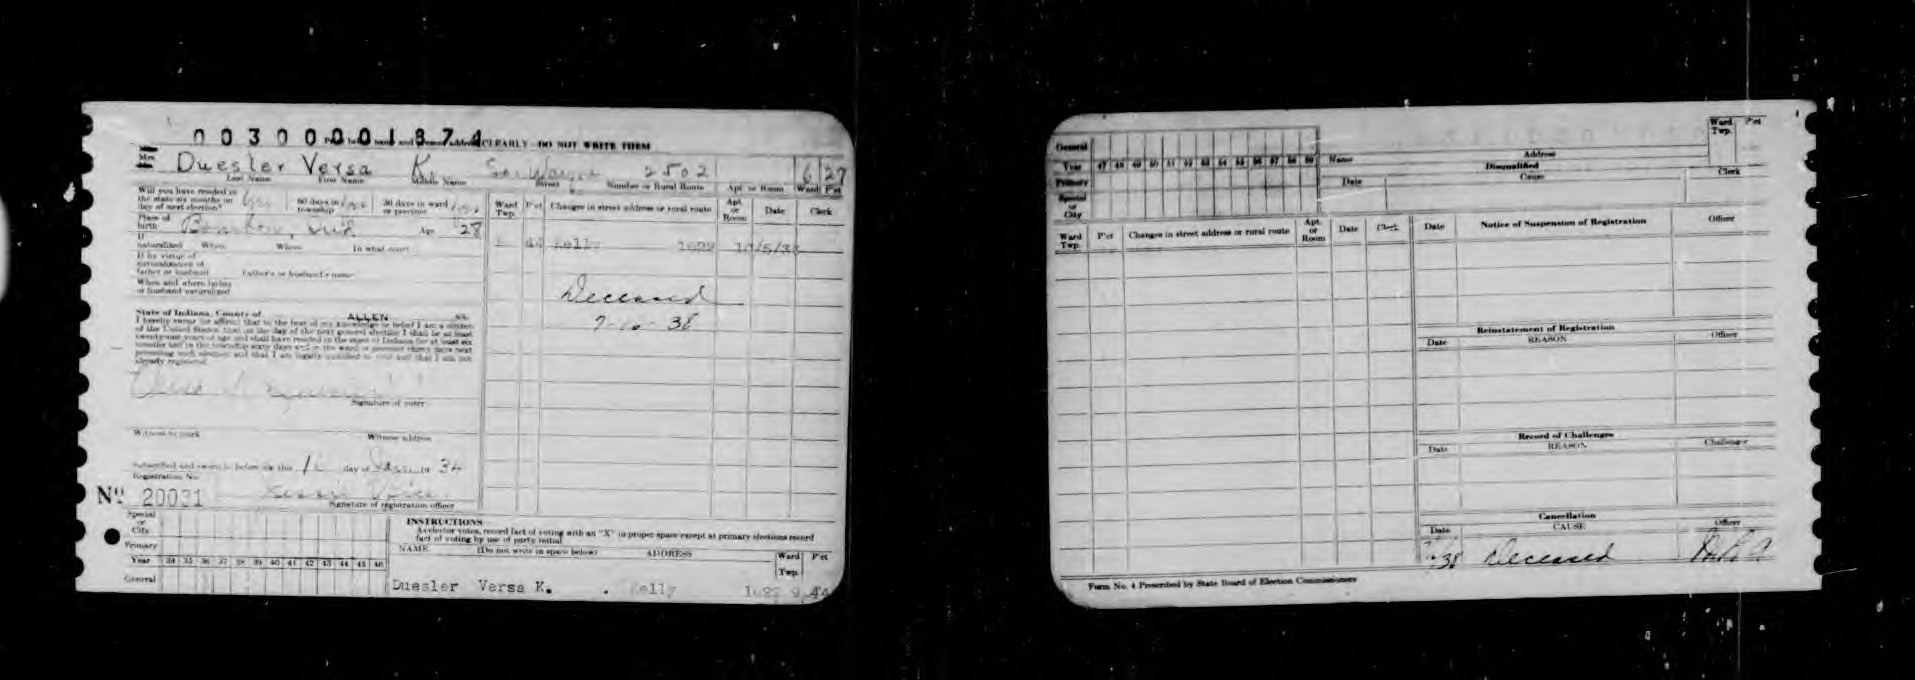 00300001874
CLEARLY - DO NOT WRITE FORM
Mrs Duesler Versa K. So Wayne 2502 6 27
Last Name First Name Middle Name Street Number or Rural Route Apt or Room Ward P'ct
Will you have resided in the state six months on day of next election? Yes 60 days in township Yes 30 days in ward or precinct Yes
Ward Twp. P'ct Changes in street address or rural route Apt. or Room Date Clerk
Place of birth Bourbon, Ind Age 28
If naturalized When Where In what court
Kelly 1622
If by virtue of naturalization of father or husband Father's or husband's name
When and where father or husband naturalized
Deceased
7-16-38
State of Indiana, County of ALLEN ss.
I hereby swear (or affirm) that to the best of my knowledge or belief I am a citizen
of the United States; that on the day of the next general election I shall be at least
twenty-one years of age and shall have resided in the state of Indiana for at least six
months and in the township sixty days and in the ward or precinct thirty days next
preceding such election; and that I am legally qualified to vote and that I am not
already registered
Signature of voter
Witness to mark Witness address
Subscribed and sworn to before me this day of Jan 19 34
Registration No.
No 20031
Signature of registration officer
Special or City
Primary
Year 34 35 36 37 38 39 40 41 42 43 44 45 46
General
INSTRUCTIONS
As elector votes, record fact of voting with an "X" in proper space except at primary elections record
fact of voting by use of party initial
NAME (Do not write in space below) ADDRESS Ward Twp. P'ct
Duesler Versa K. Kelly 1622 9 44
General
Year 47 48 49 50 51 52 53 54 55 56 57 58 59
Primary
Special or City
Name Address Ward Twp. P'ct
Disqualified
Date Cause Clerk
Ward Twp. P'ct Changes in street address or rural route Apt. or Room Date Clerk
Date Notice of Suspension of Registration Officer
Reinstatement of Registration
Date REASON Officer
Record of Challenges
Date REASON Challenger
Cancellation
Date CAUSE Officer
38 Deceased
Form No. 4 Prescribed by State Board of Election Commissioners